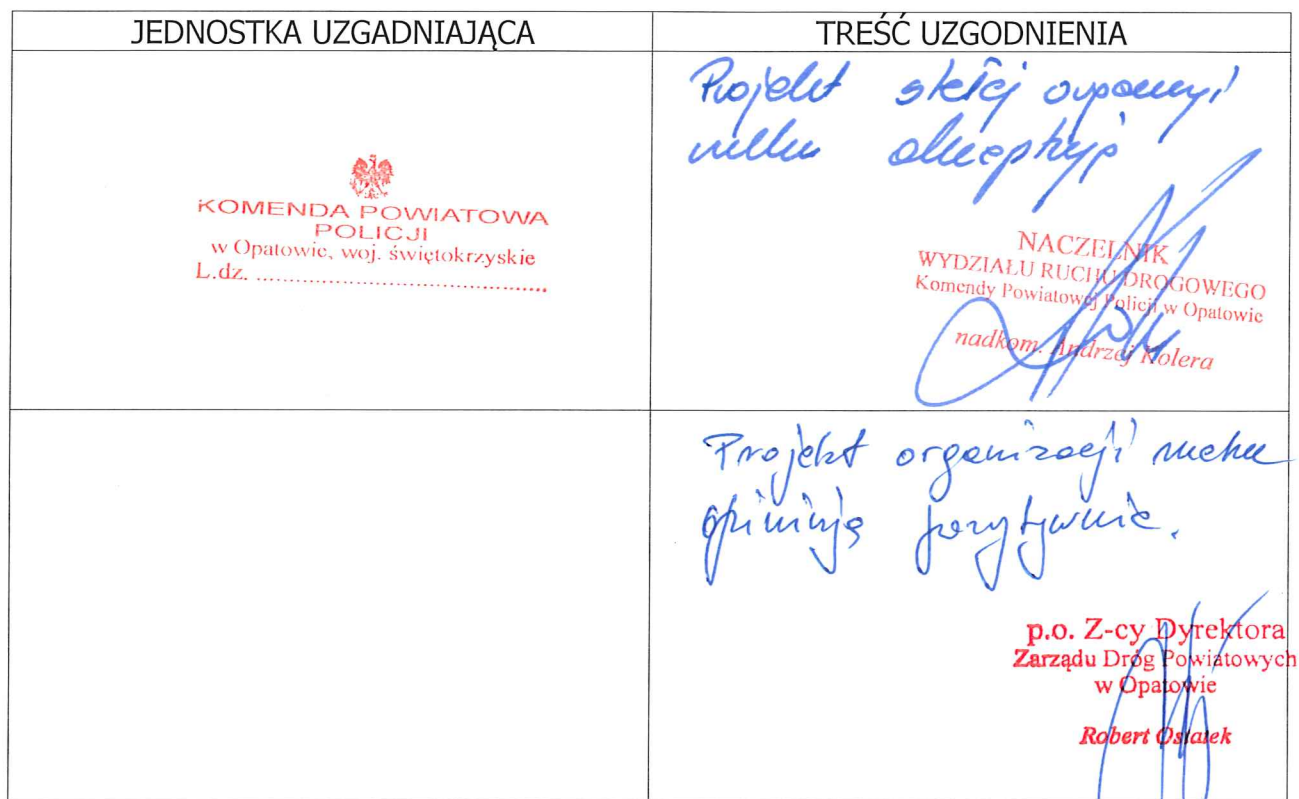 JEDNOSTKA UZGADNIAJĄCA
TREŚĆ UZGODNIENIA
KOMENDA POWIATOWA
POLICJI
w Opatowie, woj. świętokrzyskie
L.dz. ............................................
Projekt stałej organizacji
ruchu akceptuję
NACZELNIK
WYDZIAŁU RUCHU DROGOWEGO
Komendy Powiatowej Policji w Opatowie
nadkom. Andrzej Kolera
Projekt organizacji ruchu
opiniuję pozytywnie.
p.o. Z-cy Dyrektora
Zarządu Dróg Powiatowych
w Opatowie
Robert